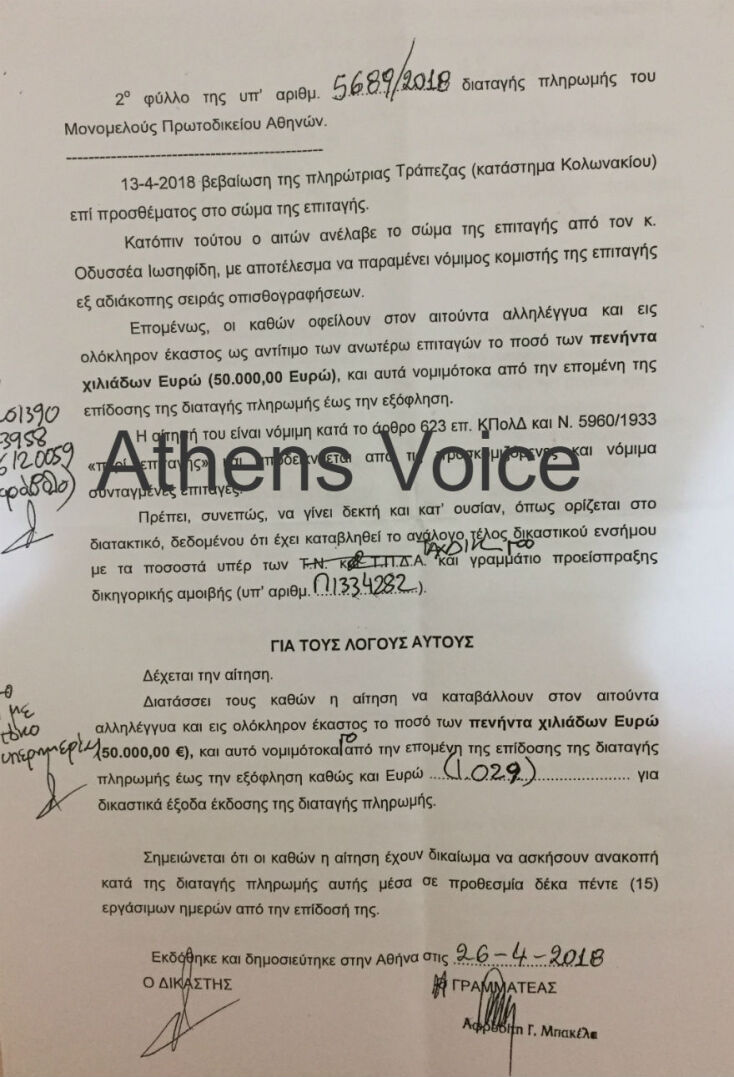 2ο φύλλο της υπ' αριθμ. 5689/2018 διαταγής πληρωμής του
Μονομελούς Πρωτοδικείου Αθηνών.
13-4-2018 βεβαίωση της πληρώτριας Τράπεζας (κατάστημα Κολωνακίου)
επί προσθέματος στο σώμα της επιταγής.
Κατόπιν τούτου ο αιτών ανέλαβε το σώμα της επιταγής από τον κ.
Οδυσσέα Ιωσηφίδη, με αποτέλεσμα να παραμένει νόμιμος κομιστής της επιταγής
εξ αδιάκοπης σειράς οπισθογραφήσεων.
Επομένως, οι καθών οφείλουν στον αιτούντα αλληλέγγυα και εις
ολόκληρον έκαστος ως αντίτιμο των ανωτέρω επιταγών το ποσό των πενήντα
χιλιάδων Ευρώ (50.000,00 Ευρώ), και αυτά νομιμότοκα από την επομένη της
επίδοσης της διαταγής πληρωμής έως την εξόφληση.
Η αίτησή του είναι νόμιμη κατά το άρθρο 623 επ. ΚΠολΔ και Ν. 5960/1933
«περί επιταγής» και αποδεικνύεται από τις προσκομιζόμενες και νόμιμα
συνταγμένες επιταγές.
Athens Voice
Πρέπει, συνεπώς, να γίνει δεκτή και κατ' ουσίαν, όπως ορίζεται στο
διατακτικό, δεδομένου ότι έχει καταβληθεί το ανάλογο τέλος δικαστικού ενσήμου
με τα ποσοστά υπέρ των Τ.Ν. και Τ.Π.Δ.Α. και γραμμάτιο προείσπραξης
δικηγορικής αμοιβής (υπ' αριθμ. Π1334282).
ΓΙΑ ΤΟΥΣ ΛΟΓΟΥΣ ΑΥΤΟΥΣ
Δέχεται την αίτηση.
Διατάσσει τους καθών η αίτηση να καταβάλλουν στον αιτούντα
αλληλέγγυα και εις ολόκληρον έκαστος το ποσό των πενήντα χιλιάδων Ευρώ
(50.000,00 €), και αυτό νομιμότοκα από την επομένη της επίδοσης της διαταγής
πληρωμής έως την εξόφληση καθώς και Ευρώ ...(1.029)................... για
δικαστικά έξοδα έκδοσης της διαταγής πληρωμής.
με
τόκο
υπερημερίας
Σημειώνεται ότι οι καθών η αίτηση έχουν δικαίωμα να ασκήσουν ανακοπή
κατά της διαταγής πληρωμής αυτής μέσα σε προθεσμία δέκα πέντε (15)
εργάσιμων ημερών από την επίδοσή της.
Εκδόθηκε και δημοσιεύτηκε στην Αθήνα στις 26-4-2018
Ο ΔΙΚΑΣΤΗΣ
Η ΓΡΑΜΜΑΤΕΑΣ
Αφροδίτη Γ. Μπακέλα